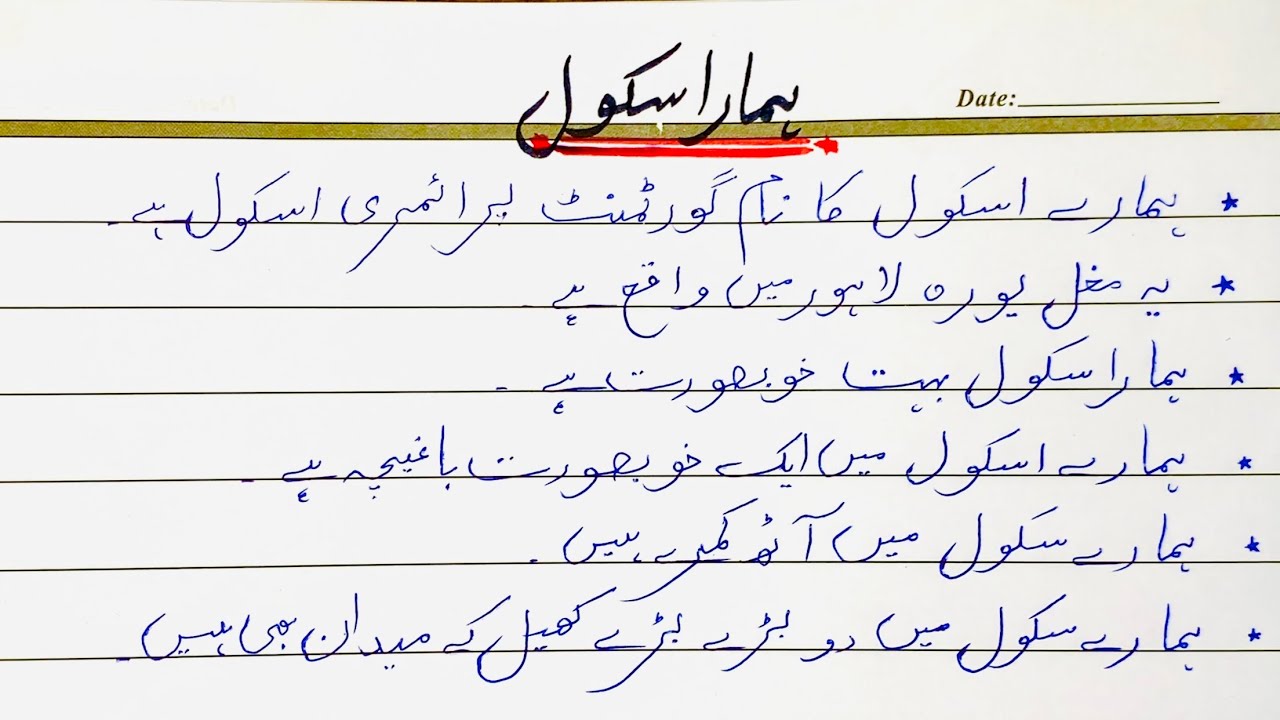 ہمارا سکول
Date:
* ہمارے اسکول کا نام گورٹمنٹ پرائمری اسکول ہے۔
* یہ مغل پورہ لاہور میں واقع ہے
* ہمارا سکول بہت خوبصورت ہے۔
* ہمارے اسکول میں ایک خوبصورت باغیچہ ہے۔
* ہمارے سکول میں آٹھ کمرے ہیں۔
* ہمارے سکول میں دو بڑے بڑے کھیل کے میدان بھی ہیں۔